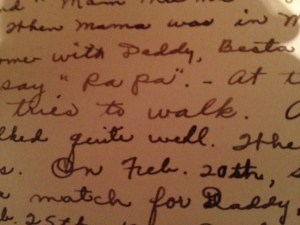 " Mam
When Mama was in
with Daddy, Besta
say "Pa pa". - At t
tries to walk.
lked quite well. Whe
s. On Feb. 20th, s
match for Daddy,
b. 25th